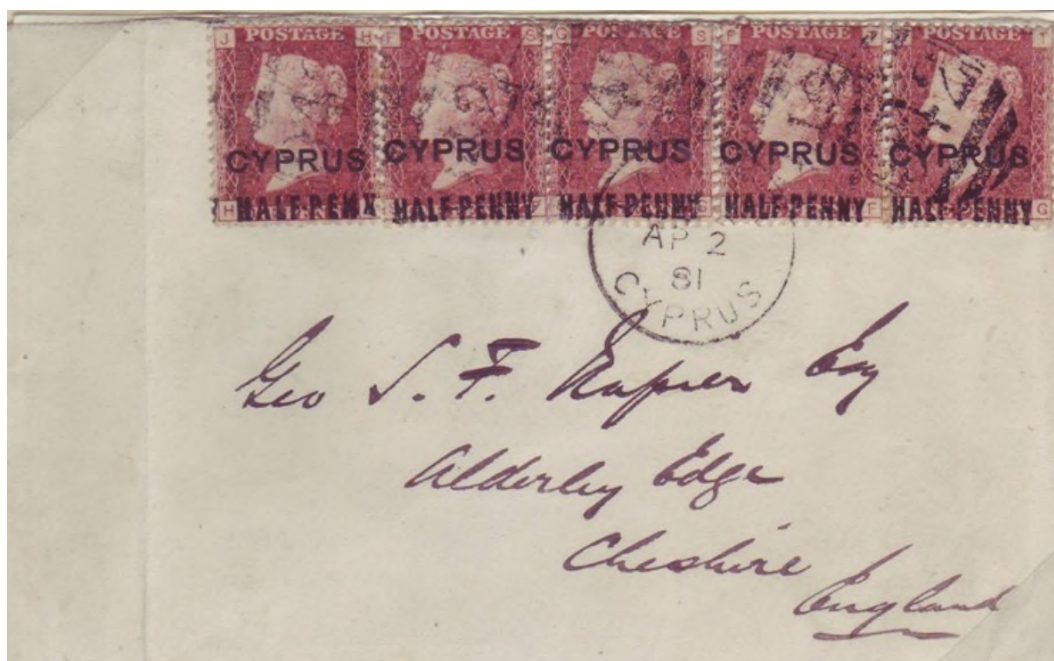 J POSTAGE H F POSTAGE S G POSTAGE S F POSTAGE POSTAGE T
CYPRUS CYPRUS CYPRUS CYPRUS CYPRUS
H HALF-PENN HALF-PENNY HALF-PENNY G HALF-PENNY F HALF-PENNY G
AP 2
81
CYPRUS
Geo S. F. Napier Esq
Alderley Edge
Cheshire
England